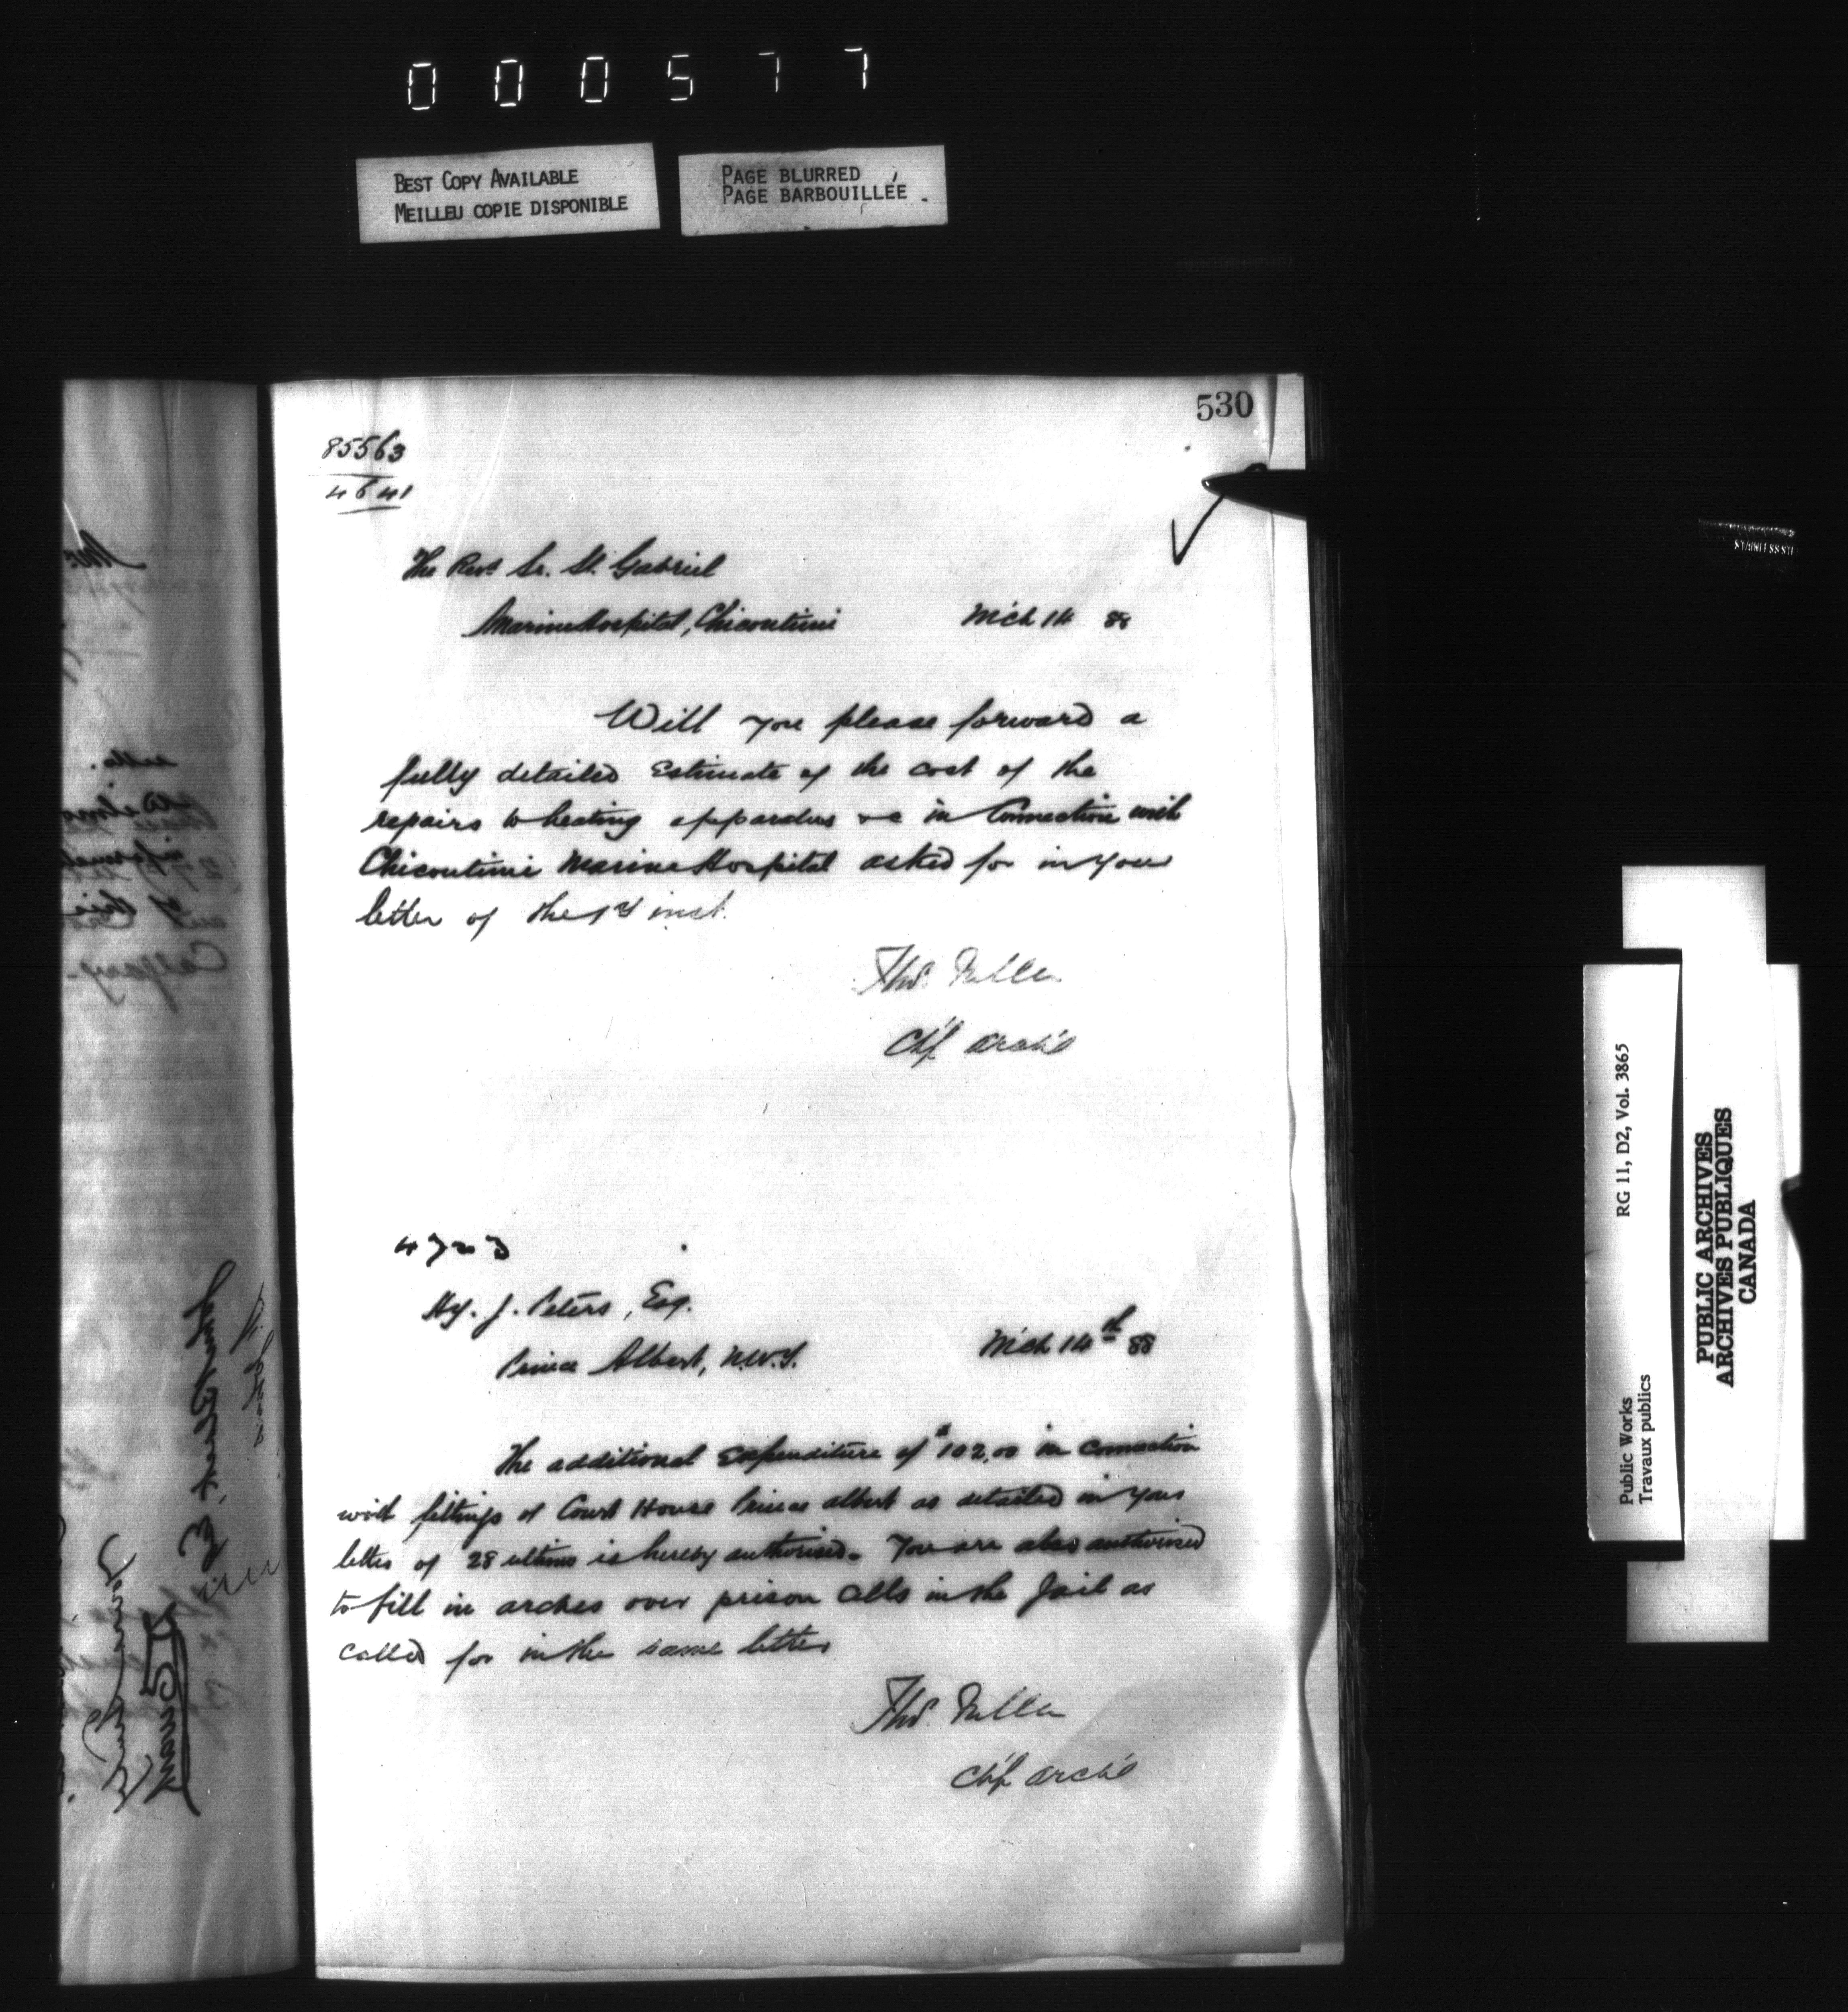 000577
BEST COPY AVAILABLE
MEILLEU COPIE DISPONIBLE
PAGE BLURRED
PAGE BARBOUILLÉE
530
85563
4641
The Revd Sr. St. Gabriel
Marine Hospital, Chicoutimi Mch 14 88
Will you please forward a
fully detailed Estimate of the cost of the
repairs to heating apparatus &c in Connection with
Chicoutimi Marine Hospital asked for in your
letter of the inst.
Thos. Fuller
Ch'f Arch't
4723
Hy. J. Peters, Esq.
Prince Albert, N.W.T. Mch 14th 88
The additional Expenditure of $102.00 in Connection
with fittings of Court House Prince Albert as detailed in your
letter of 28 ultimo is hereby authorised. You are also authorised
to fill in arches over prison Cells in the Jail as
Called for in the same letter
Thos. Fuller
Ch'f Arch't
RG 11, D2, Vol. 3865
Public Works
Travaux publics
PUBLIC ARCHIVES
ARCHIVES PUBLIQUES
CANADA